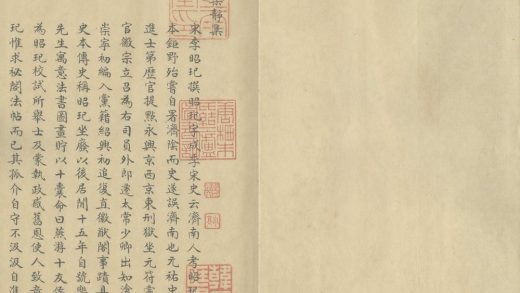 靜集
宋李昭玘撰昭玘字成季宋史云濟南人考昭玘
本鉅野殆嘗自署濟陰而史遂誤濟南也元祐
進士第歷官提點永興京西京東刑獄坐元符黨
官徽宗立召為右司員外郎遷太常少卿出知滄
崇寧初編入黨籍紹興初追復直徽猷閣事蹟具
史本傳史稱昭玘坐廢以後居閒十五年自號樂
先生寓意法書圖畫貯以十囊命曰燕游十友
為昭玘校試所舉士及蒙執政感舊恩使人致意
玘惟求秘閣法帖而已其孤介自守不汲汲自進